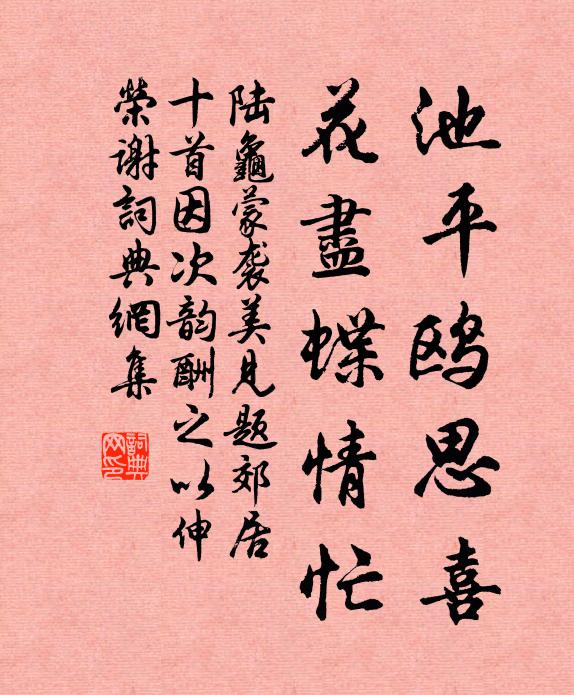 池平鸥思喜
花盡蝶情忙
陆龜蒙袭美見题郊居
十首因次韵酬之以伸
榮谢詞典網集
詞典网印